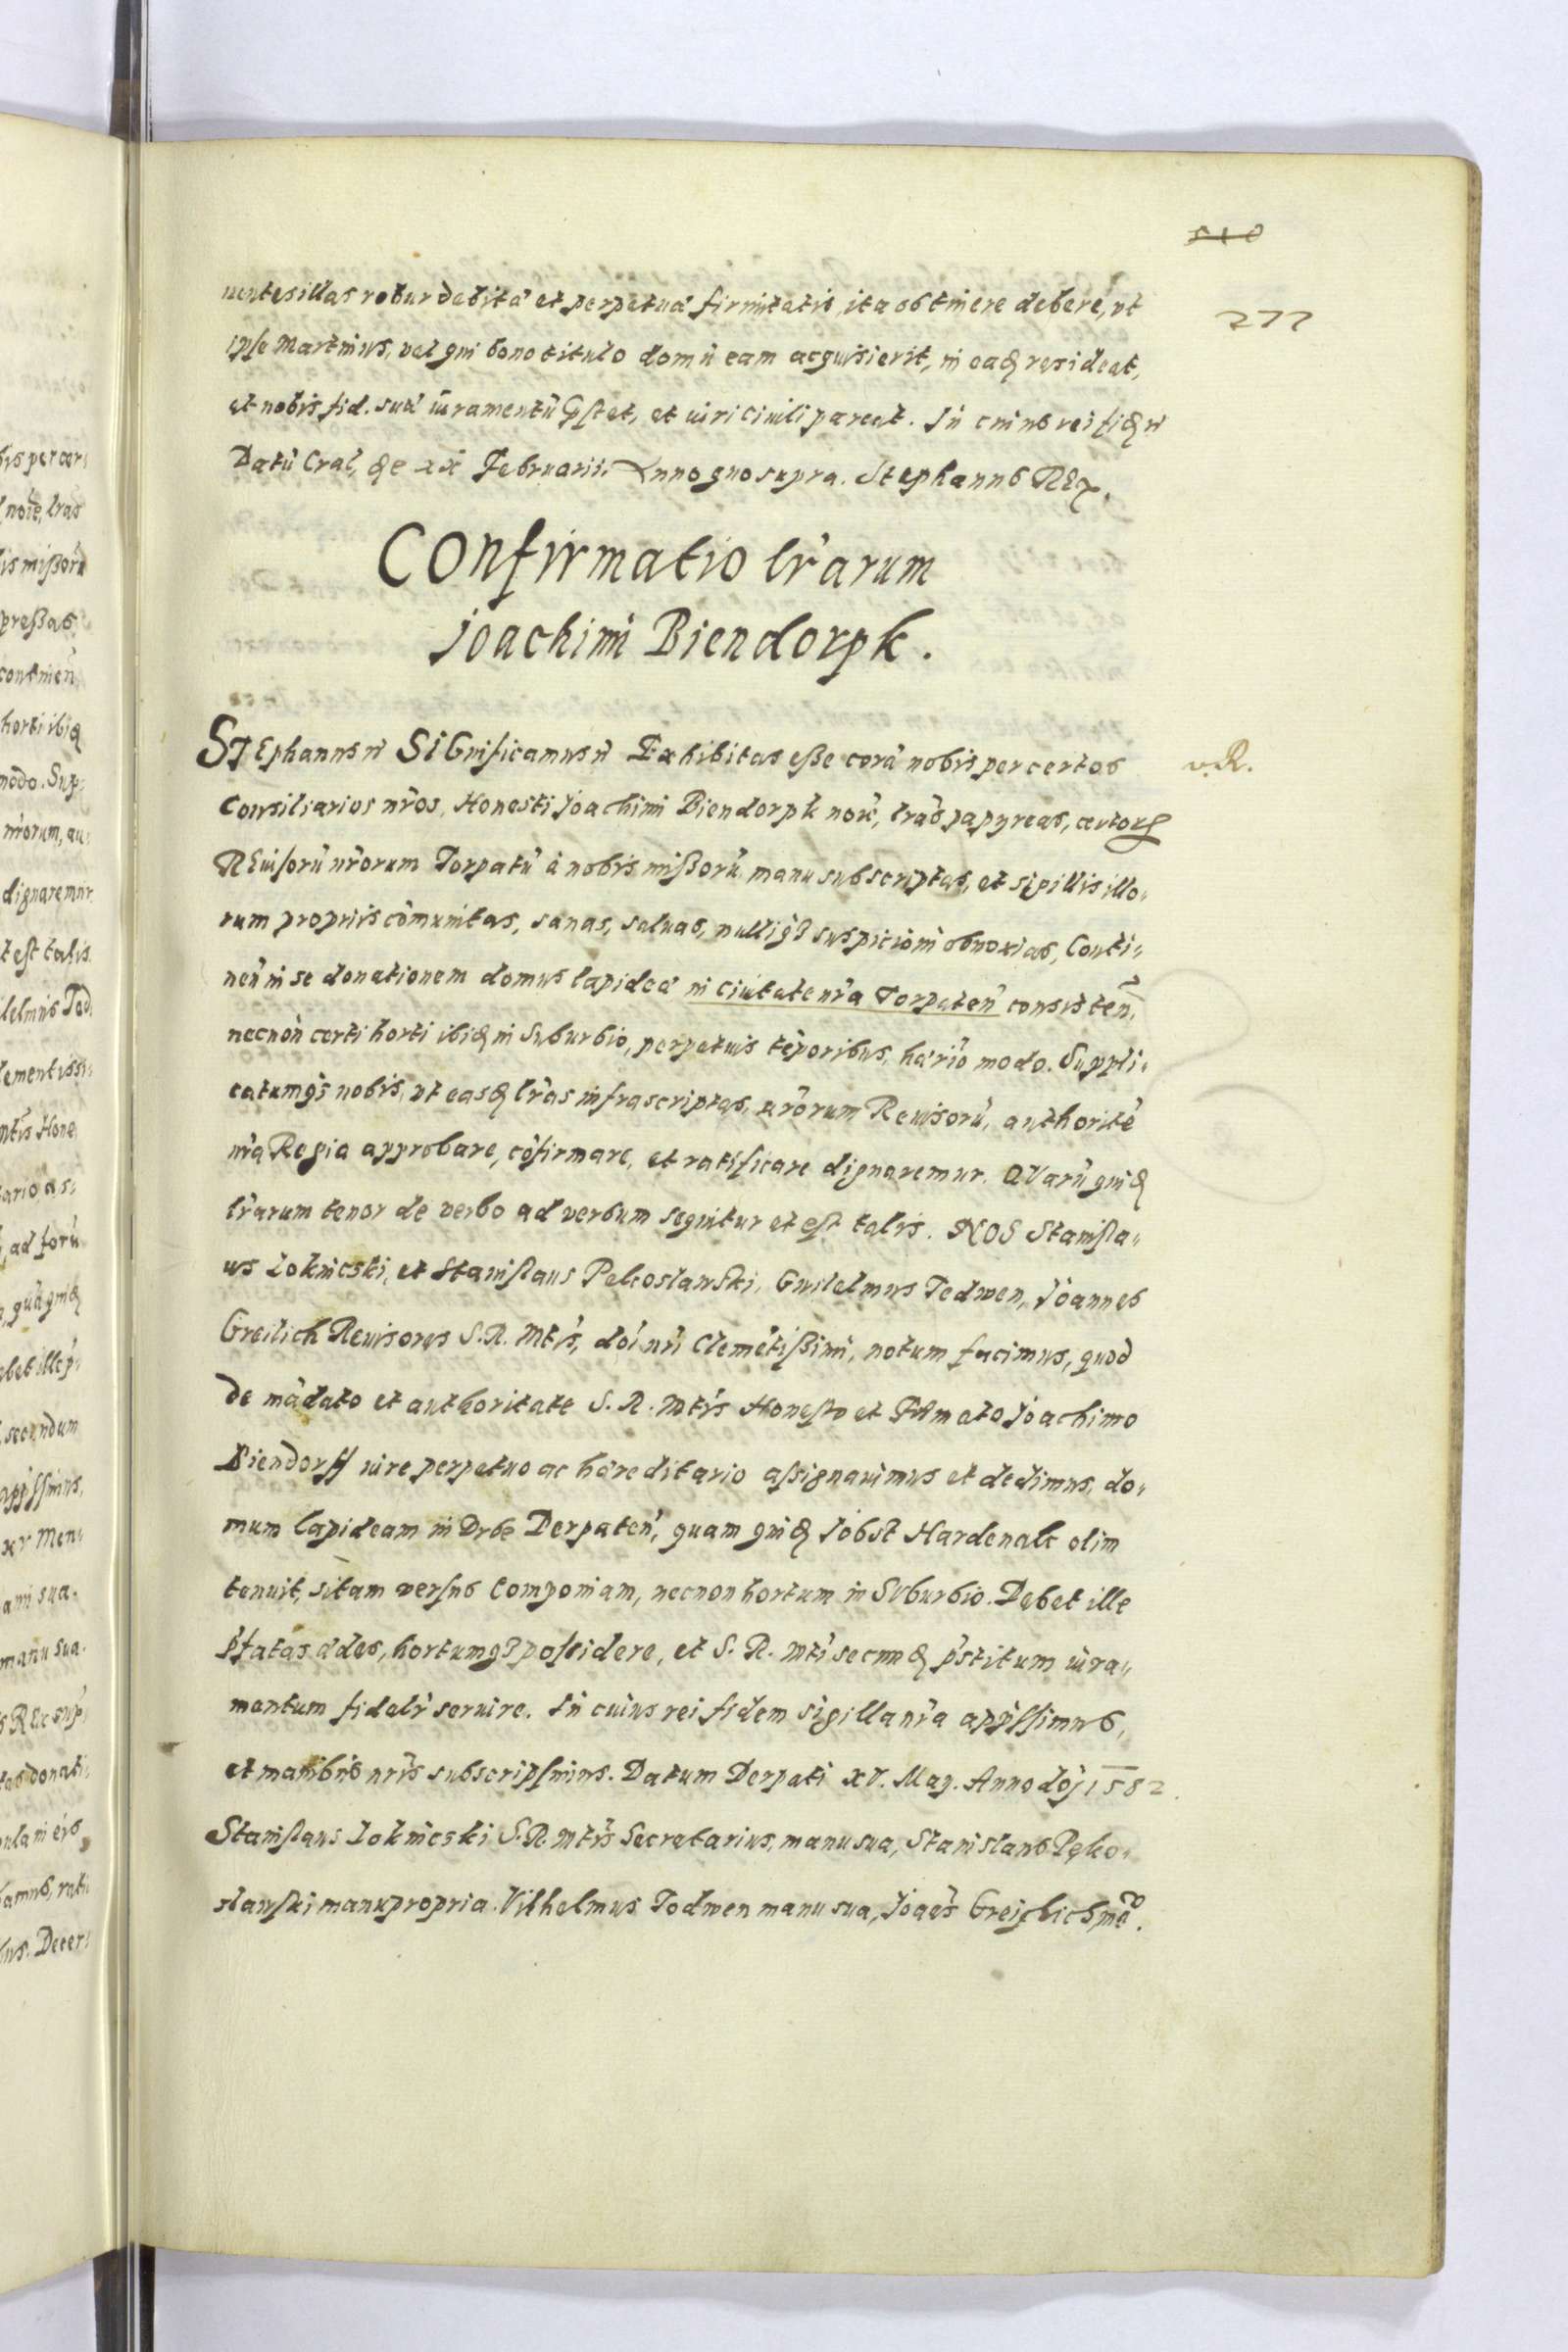 510
277
uentes illas robur debitæ et perpetuæ firmitatis, ita obtinere debere, vt
ipse Martinus, vel qui bono titulo domū eam acquisierit, in eadē resideat,
et nobis fid. suæ iuramentū pstet, et iuri ciuili pareat. In cuius rei fidē etc
Datū Crać, die xx Februarii. Anno quo supra. Stephanus REx.
COnfirmatio lr̄arum
Joachimi Biendorpk.
v.R.
STEphanus etc SIGnificamus etc Exhibitas eße corā nobis per certos
Consiliarios nr̄os, Honesti Joachimi Biendorpk noīe, lrās papyreas, certor
REuisorū nr̄orum Torpatū à nobis mißorū, manu subscriptas, et sigillis illo-
rum propriis cōmunitas, sanas, saluas, nulliq3 suspicioni obnoxias, Conti-
neñ in se donationem domus lapideæ in ciuitate nr̄a Torpateñ consisteñ,
necnon certi horti ibidē in Suburbio, perpetuis tēporibus, hærio modo. Suppli-
catumq3 nobis, vt easdē lr̄as infrascriptas, nr̄orum Reuisorū, authoritē
nr̄a Regia approbare, cōfirmare, et ratificare dignaremur. QVarū quidē
lr̄arum tenor de verbo ad verbum sequitur et est talis. NOS Stanisla-
us Loknicski, et Stanislaus Pekoslawski, Guilelmus Tedwen, Joannes
Greilich Reuisores S.R. Mtis, doī nr̄i Clemētißimi, notum facimus, quod
de mādato et authoritate S.R. Mtis Honesto et FAmato Joachimo
Biendorff iure perpetuo ac hæreditario assignauimus et dedimus, do-
mum lapideam in Vrbe Derpateñ, quam quidē Jobst Hardenak olim
tenuit, sitam versus Componiam, necnon hortum in SVburbio. Debet ille
pfatas ædes, hortumq3 possidere, et S.R. Mti secundū pstitum iura-
mentum fidelr̄ seruire. In cuius rei fidem sigilla nr̄a appssimus,
et manibus nr̄is subscripsimus. Datum Derpati XV. May. Anno doj 1582.
Stanislaus Loknicski S.R. Mtis Secretarius, manu sua, Stanislaus Pęko-
slawski manu propria. Vilhelmus Todwen manu sua, Joāēs Greiglich, mā.